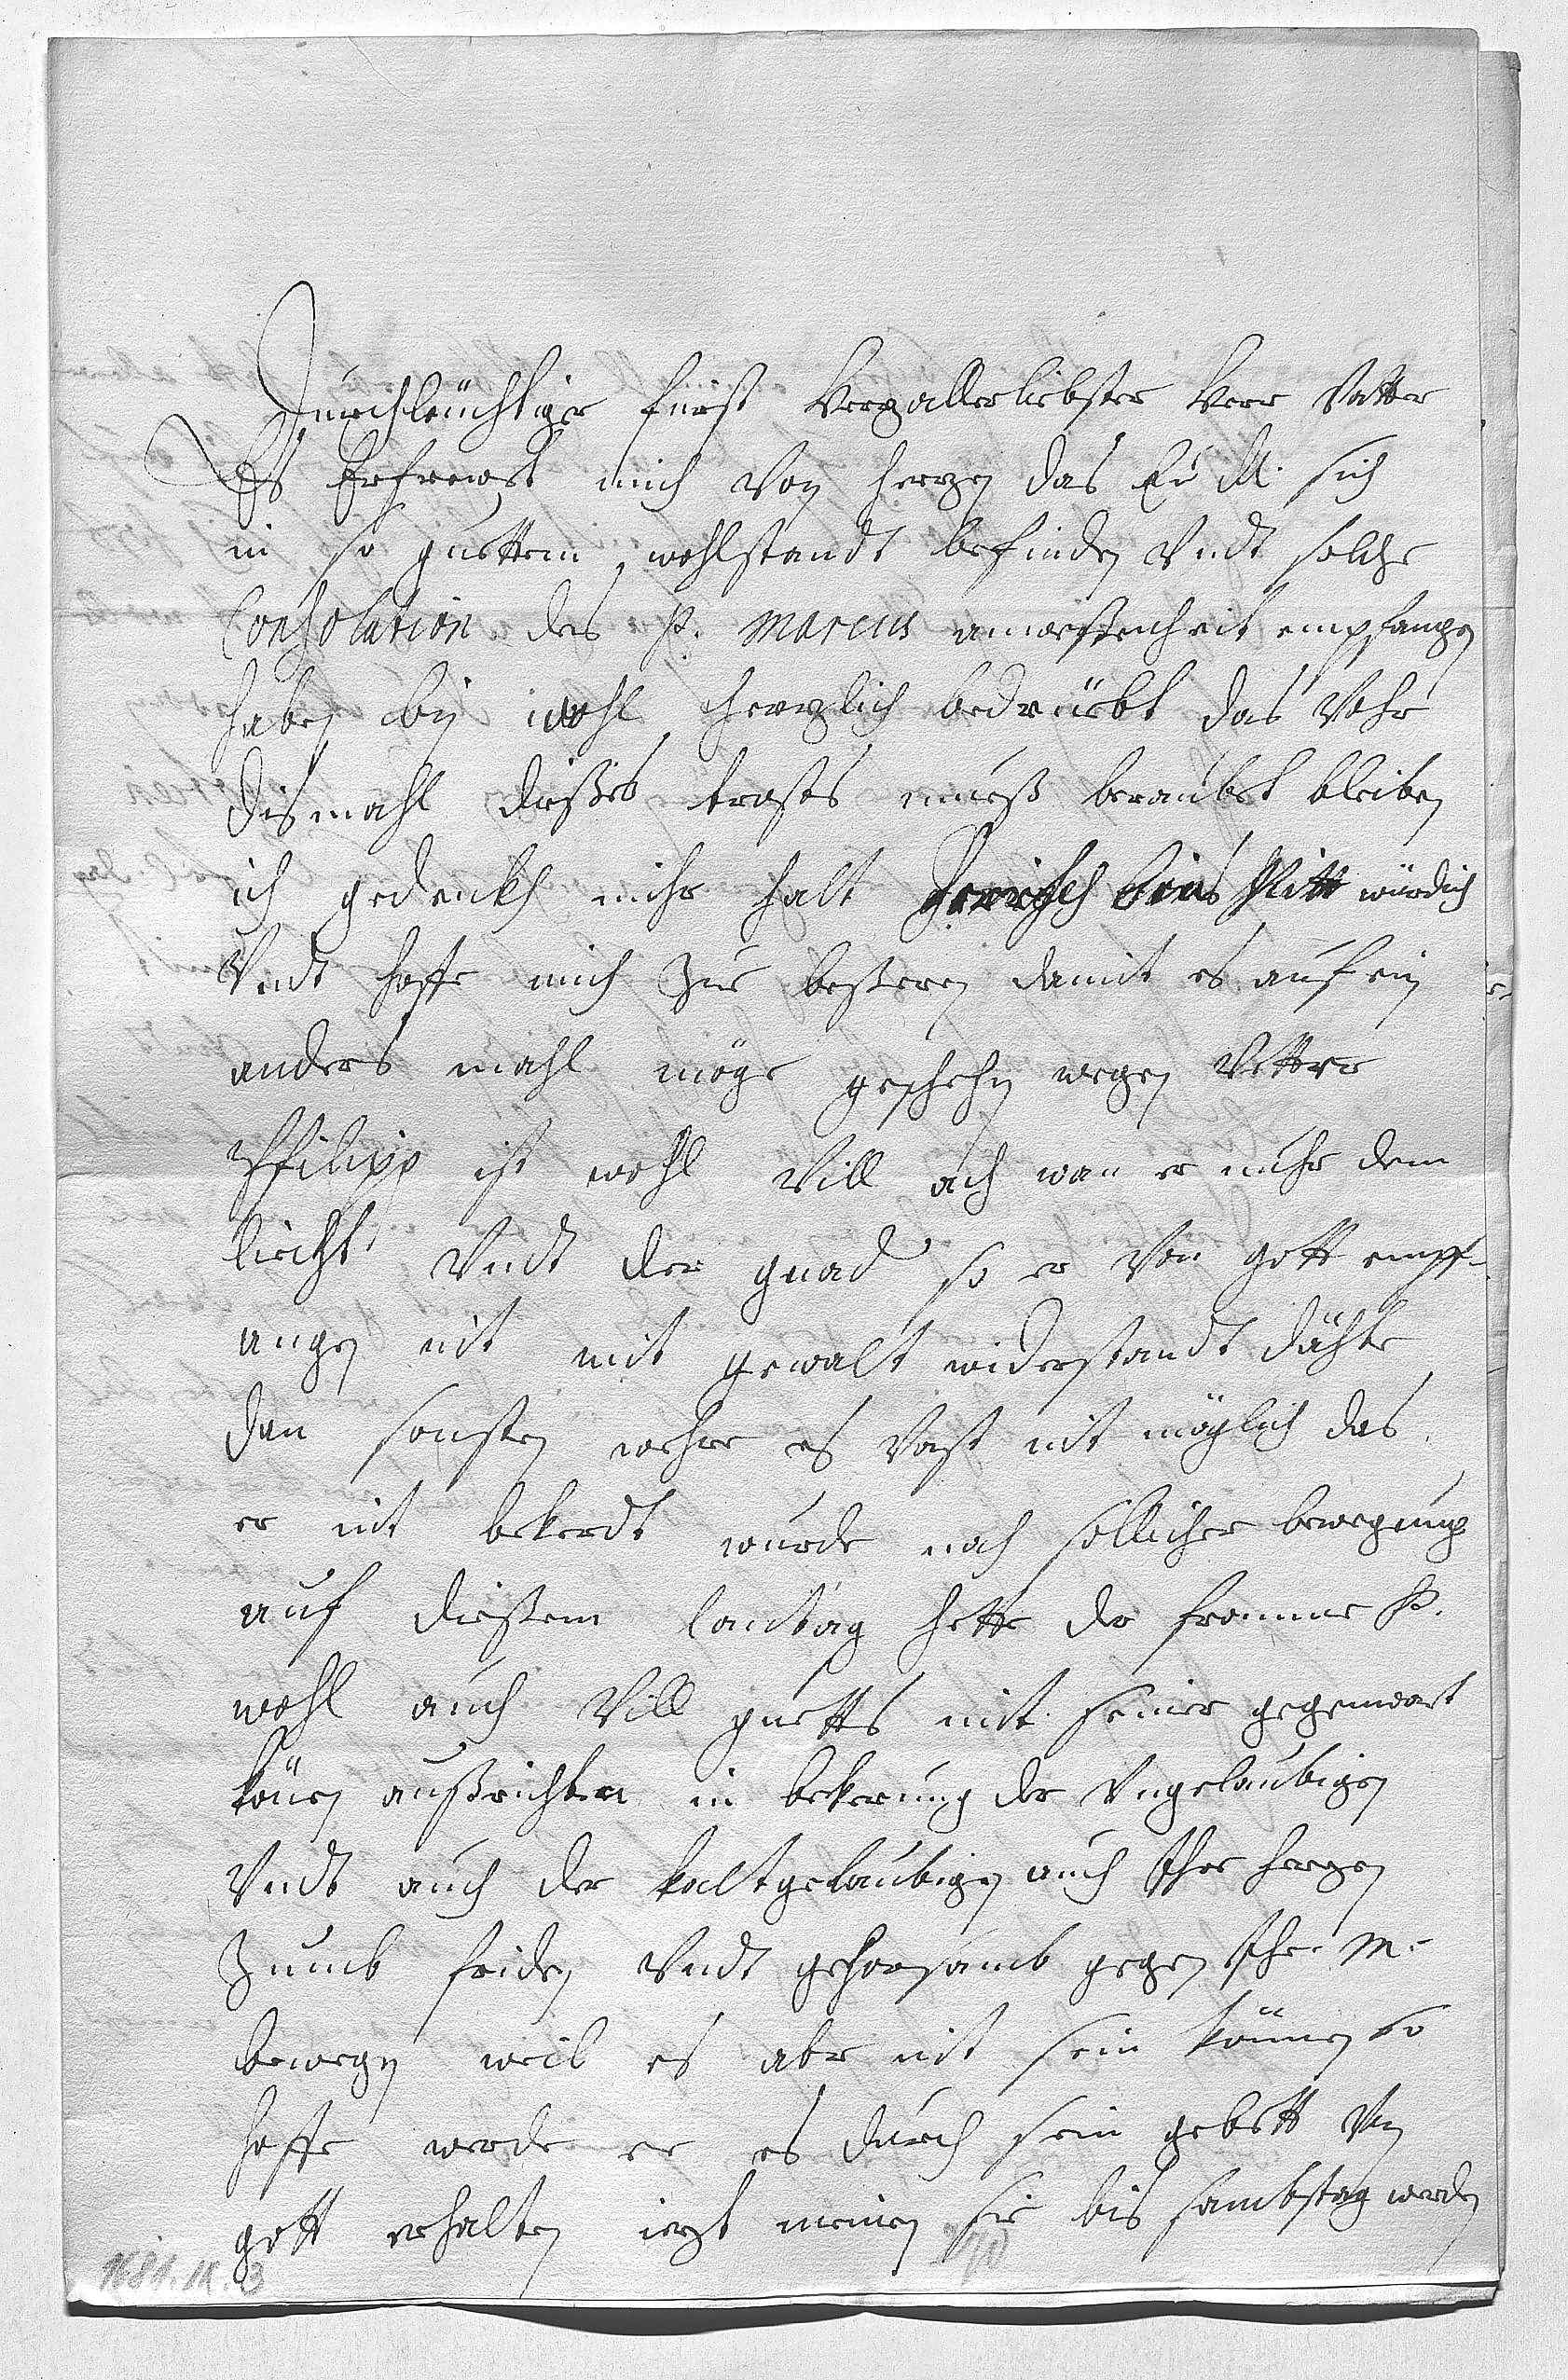 Durchleüchtiger fürst herzallerliebster herr Vatter
Es Erfrewet mich von herzen das Eu M. sich
in so guettem wohlstandt befinden Vndt solche
Consolation des P. Marcus anwessenheit empfangen
haben bin wohl herzlich bedrüebt das
dismahl dießes trosts mueß beraubet bleiben
ich gedenckh mihr halt bins nitt würdich
Vndt hoffe mich zue beßeren damit es auf ein
anders mahl möge geschehen wegen Vetter
Philipp ist wohl Vill ach wan er nuhr dem
liecht Vndt der gnad so er von gott empf-
angen nit mit gewalt widerstandt däthe
dan sonsten wehre es Vast nit möglich das
er nit bekerdt wurde nach sollicher bewegung
auf dießem lantag hette der fromme P.
wohl auch Vill guetts mit seiner gegenwart
könen außrichten in bekerung der Vngelaubigen
Vndt auch der kaltgelaubigen auch Ihre herzen
zumb friden Vndt gehorsamb gegen Ihr M.
bewegen weil es aber nit sein können so
hoffe werde er es durch sein gebett Von
gott erhalten iezt meinen sie bis sambstag werden
1681.IX.3